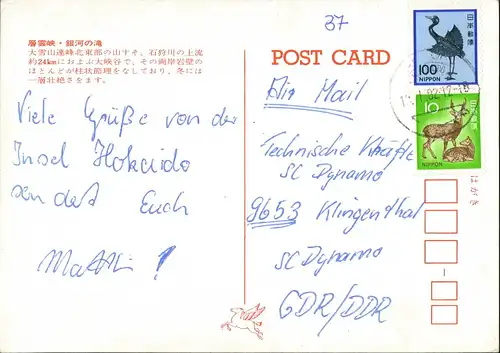 37
層雲峡・銀河の滝
大雪山連峰北東部の山すそ、石狩川の上流
約24kmにおよぶ大峡谷で、その両岸岩壁の
ほとんどが柱状節理をなしており、冬には
一層壮絶さをます。
POST CARD
Viele Grüße von der
Insel Hokaido
sendet Euch
Matthi!
Air Mail
Technische Kräfte
SC Dynamo
9653 Klingenthal
SC Dynamo
GDR/DDR
日本郵便
100
NIPPON
82.12-18
10
日本郵便
NIPPON
はがき